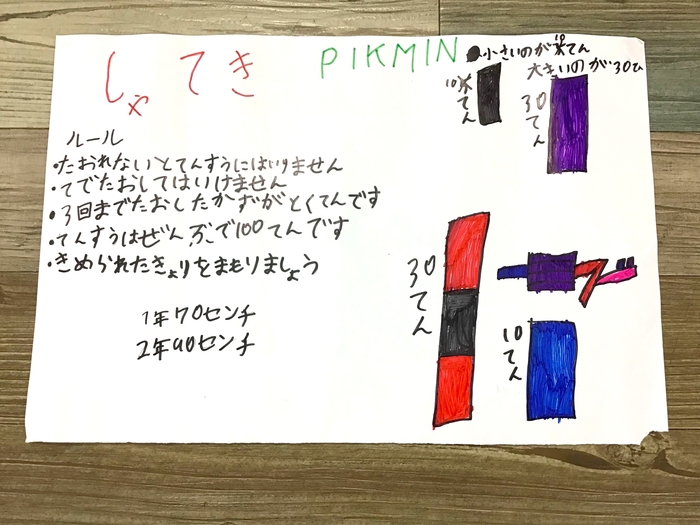 しゃてき
PIKMIN
小さいのが10てん
大きいのが30て
10てん
30てん
ルール
・たおれないとてんすうにはいりません
・てでたおしてはいけません
・3回までたおしたかずがとくてんです
・てんすうはぜんぶで100てんです
・きめられたきょりをまもりましょう
1年70センチ
2年90センチ
30てん
10てん